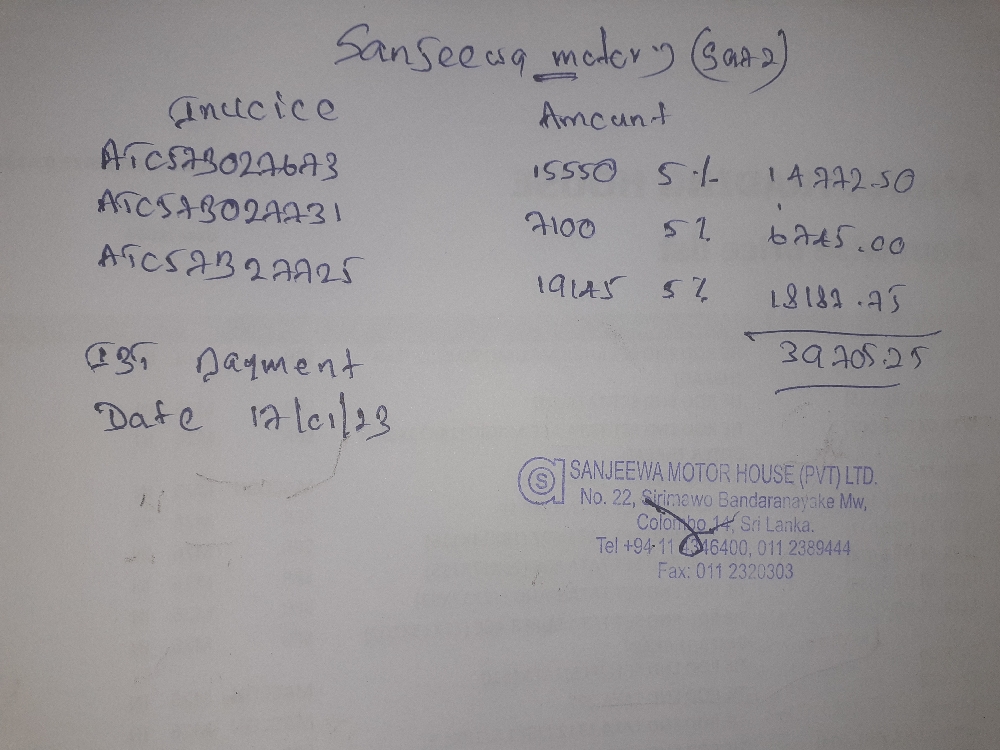 Sanjeewa motors
Invoice Amount
ATC573027673 15550 5% 14772.50
ATC573027731 7100 5% 6745.00
ATC57327725 19145 5% 18187.75
39705.25
payment
Date 17/01/23
SANJEEWA MOTOR HOUSE (PVT) LTD.
No. 22, Sirimawo Bandaranayake Mw,
Colombo 14, Sri Lanka.
Tel +94-11 4346400, 011 2389444
Fax: 011 2320303